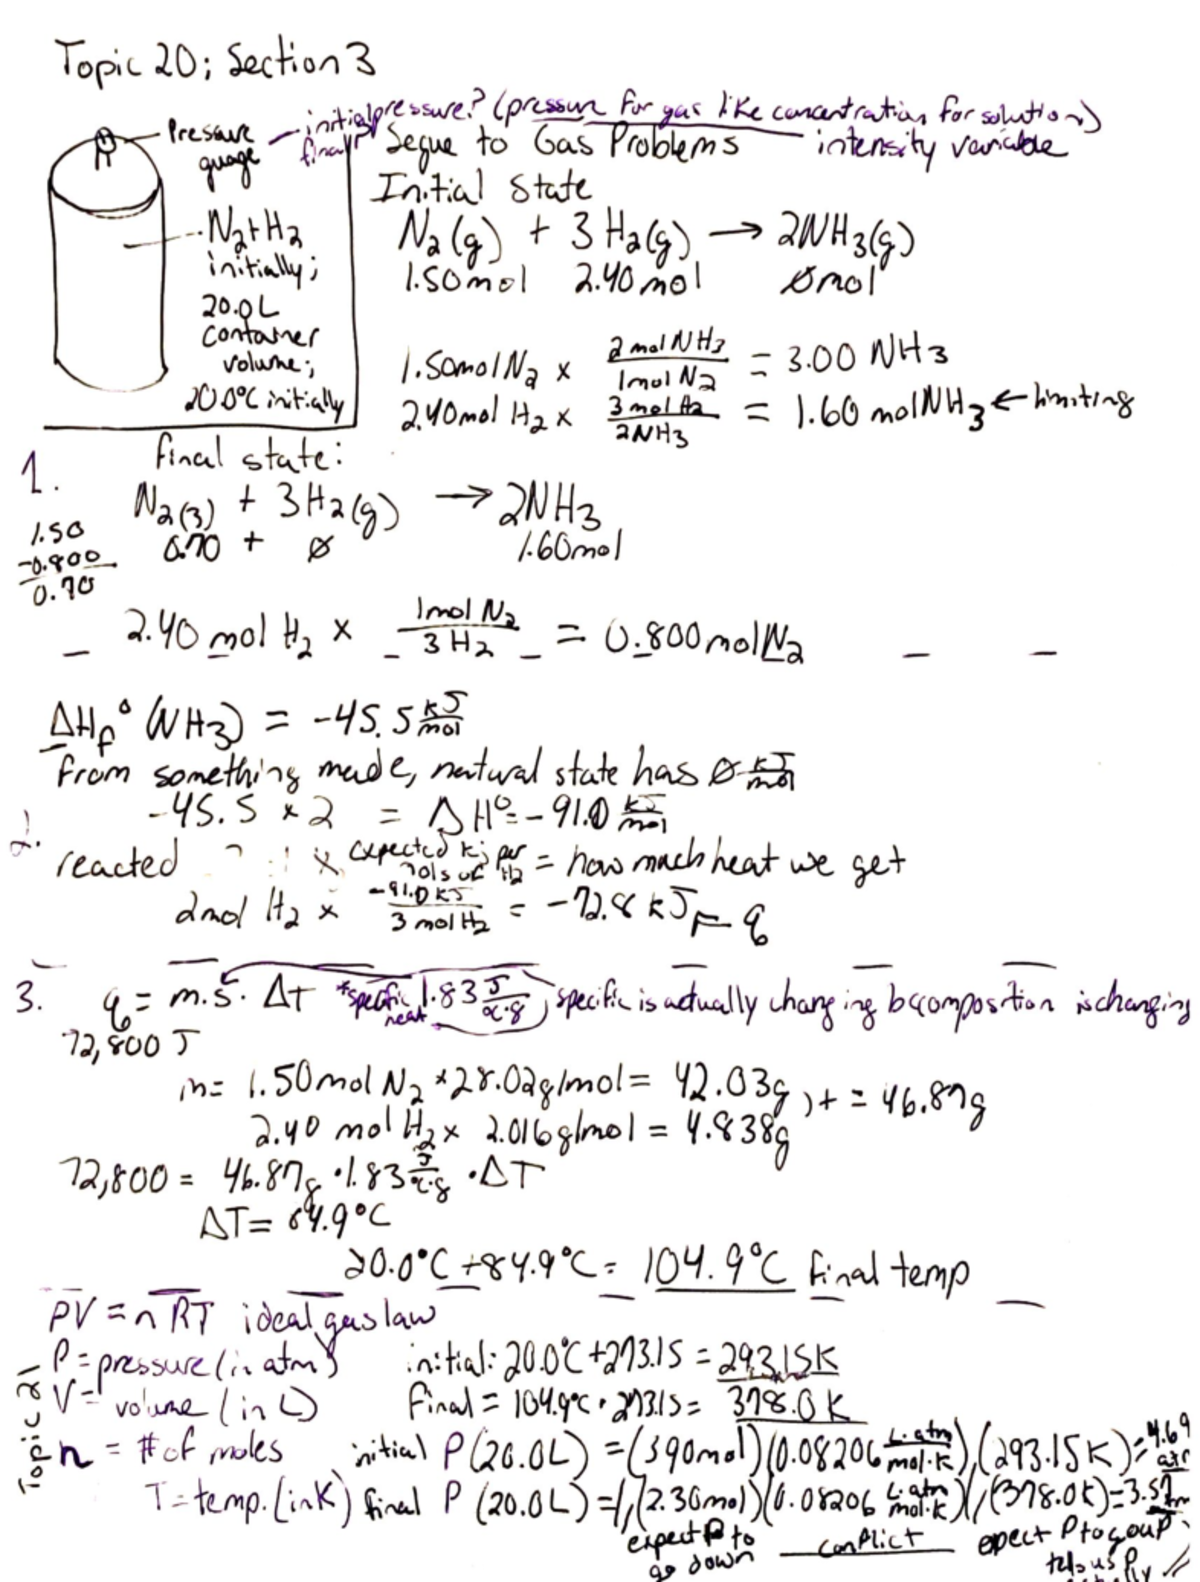 Topic 20; Section 3
initial pressure? (pressure for gas like concentration for solutions)
final
intensity variable
Pressure
guage
N2 + H2
initially;
20.0 L
container
volume;
20.0°C initially
Segue to Gas Problems
Initial State
N2(g) + 3 H2(g) → 2NH3(g)
1.50 mol 2.40 mol ∅mol
1.50mol N2 x 2 mol NH3 / 1mol N2 = 3.00 NH3
2.40mol H2 x 3 mol H2 / 2NH3 = 1.60 mol NH3 ← limiting
1.
final state:
N2(g) + 3H2(g) → 2NH3
0.70 + ∅ 1.60mol
1.50
-0.800
0.70
2.40 mol H2 x 1mol N2 / 3 H2 = 0.800 mol N2
ΔHf° (NH3) = -45.5 kJ/mol
from something made, natural state has ∅ kJ/mol
-45.5 x 2 = ΔH°= -91.0 kJ/mol
2.
reacted x expected kj per H2 = how much heat we get
2mol H2 x -91.0 kJ / 3 mol H2 = -72.8 kJ ← q
3. q = m.s. ΔT *specific heat 1.83 J/°C·g, specific is actually changing bc composition is changing
72,800 J
m= 1.50mol N2 *28.02g/mol = 42.03g
2.40 mol H2 x 2.016g/mol = 4.838g
)+ = 46.87g
72,800 = 46.87g · 1.83 J/°C·g · ΔT
ΔT= 84.9°C
20.0°C +84.9°C = 104.9°C final temp
PV = nRT ideal gas law
P = pressure (in atm)
V = volume (in L)
n = # of moles
T = temp. (in K)
Topic 21
initial: 20.0°C + 273.15 = 293.15K
final = 104.9°C + 273.15 = 378.0 K
initial P(20.0L) = (3.90mol)(0.08206 L·atm/mol·K)(293.15K) = 4.69 atm
final P (20.0L) = (2.30mol)(0.08206 L·atm/mol·K)(378.0K) = 3.57 atm
expect P to
go down
conflict
expect P to go up
tells us P